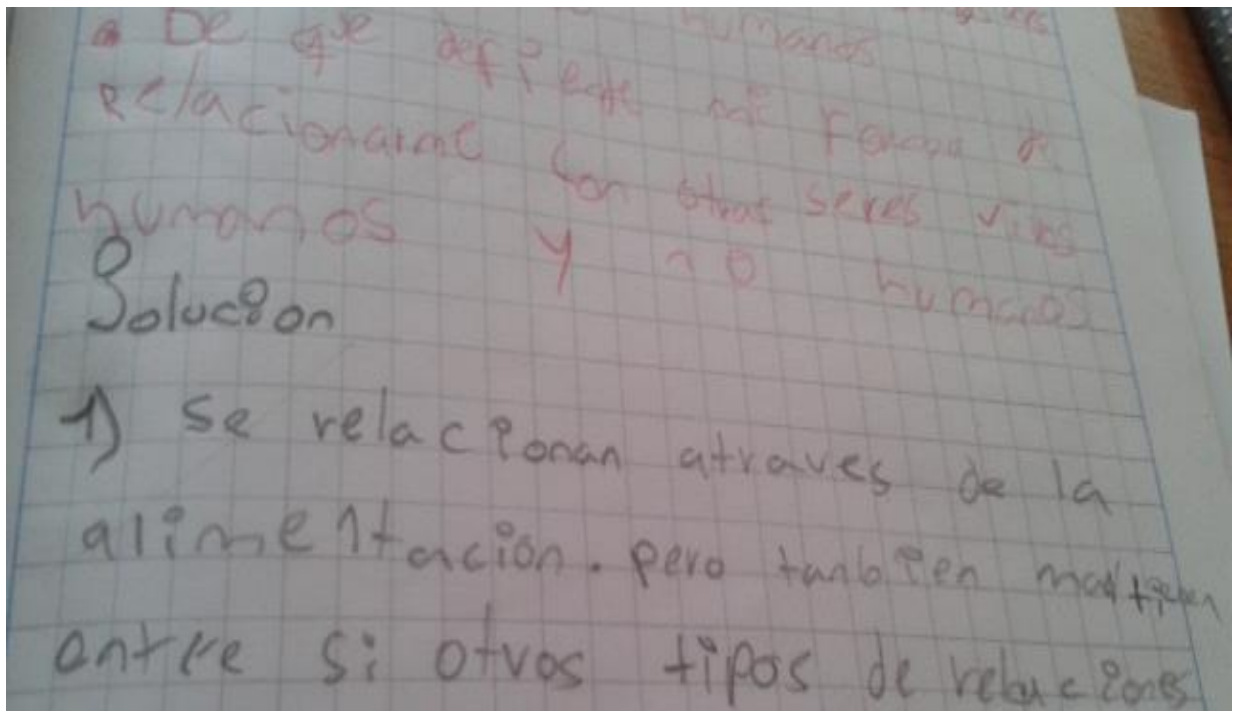 humanos
• De que depende mi Forma de
relacionarme con otros seres vivos
humanos y no humanos
Solucion
1) Se relacionan atraves de la
alimentación. pero tanbien mantienen
entre si otros tipos de relaciones